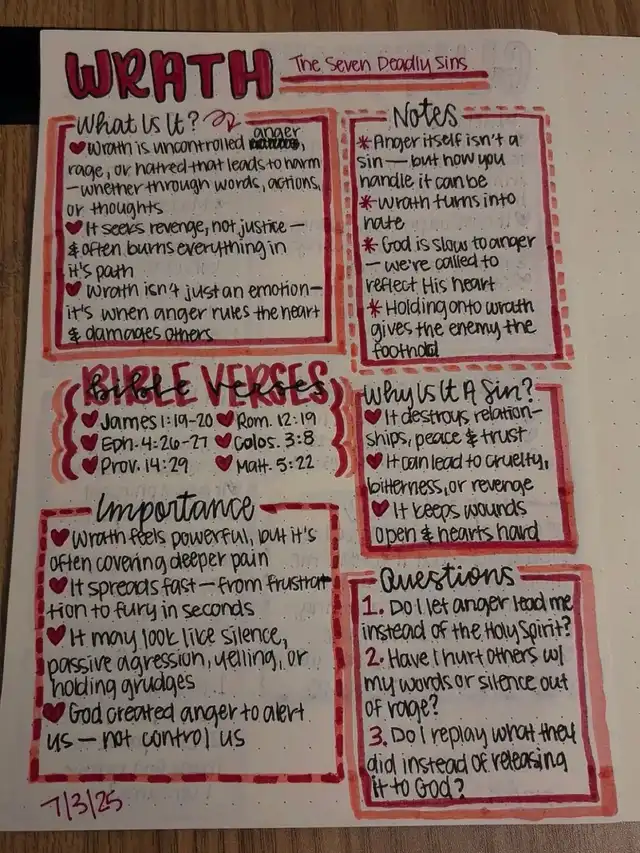 WRATH
The Seven Deadly Sins
What Is It?
♥ Wrath is uncontrolled anger,
rage, or hatred that leads to harm
—whether through words, actions,
or thoughts
♥ It seeks revenge, not justice—
& often burns everything in
it's path
♥ Wrath isn't just an emotion—
it's when anger rules the heart
& damages others
Notes
* Anger itself isn't a
sin—but how you
handle it can be
* Wrath turns into
hate
* God is slow to anger
—we're called to
reflect His heart
* Holding onto wrath
gives the enemy the
foothold
BIBLE VERSES
bible verses
♥ James 1:19-20 ♥ Rom. 12:19
♥ Eph. 4:26-27 ♥ Colos. 3:8
♥ Prov. 14:29 ♥ Matt. 5:22
Why Is It A Sin?
♥ It destroys relation-
ships, peace & trust
♥ It can lead to cruelty,
bitterness, or revenge
♥ It keeps wounds
open & hearts hard
Importance
♥ Wrath feels powerful, but it's
often covering deeper pain
♥ It spreads fast—from frustrat
tion to fury in seconds
♥ It may look like silence,
passive agression, yelling, or
holding grudges
♥ God created anger to alert
us—not control us
Questions
1. Do I let anger lead me
instead of the Holy Spirit?
2. Have I hurt others w/
my words or silence out
of rage?
3. Do I replay what they
did instead of releasing
it to God?
7/3/25